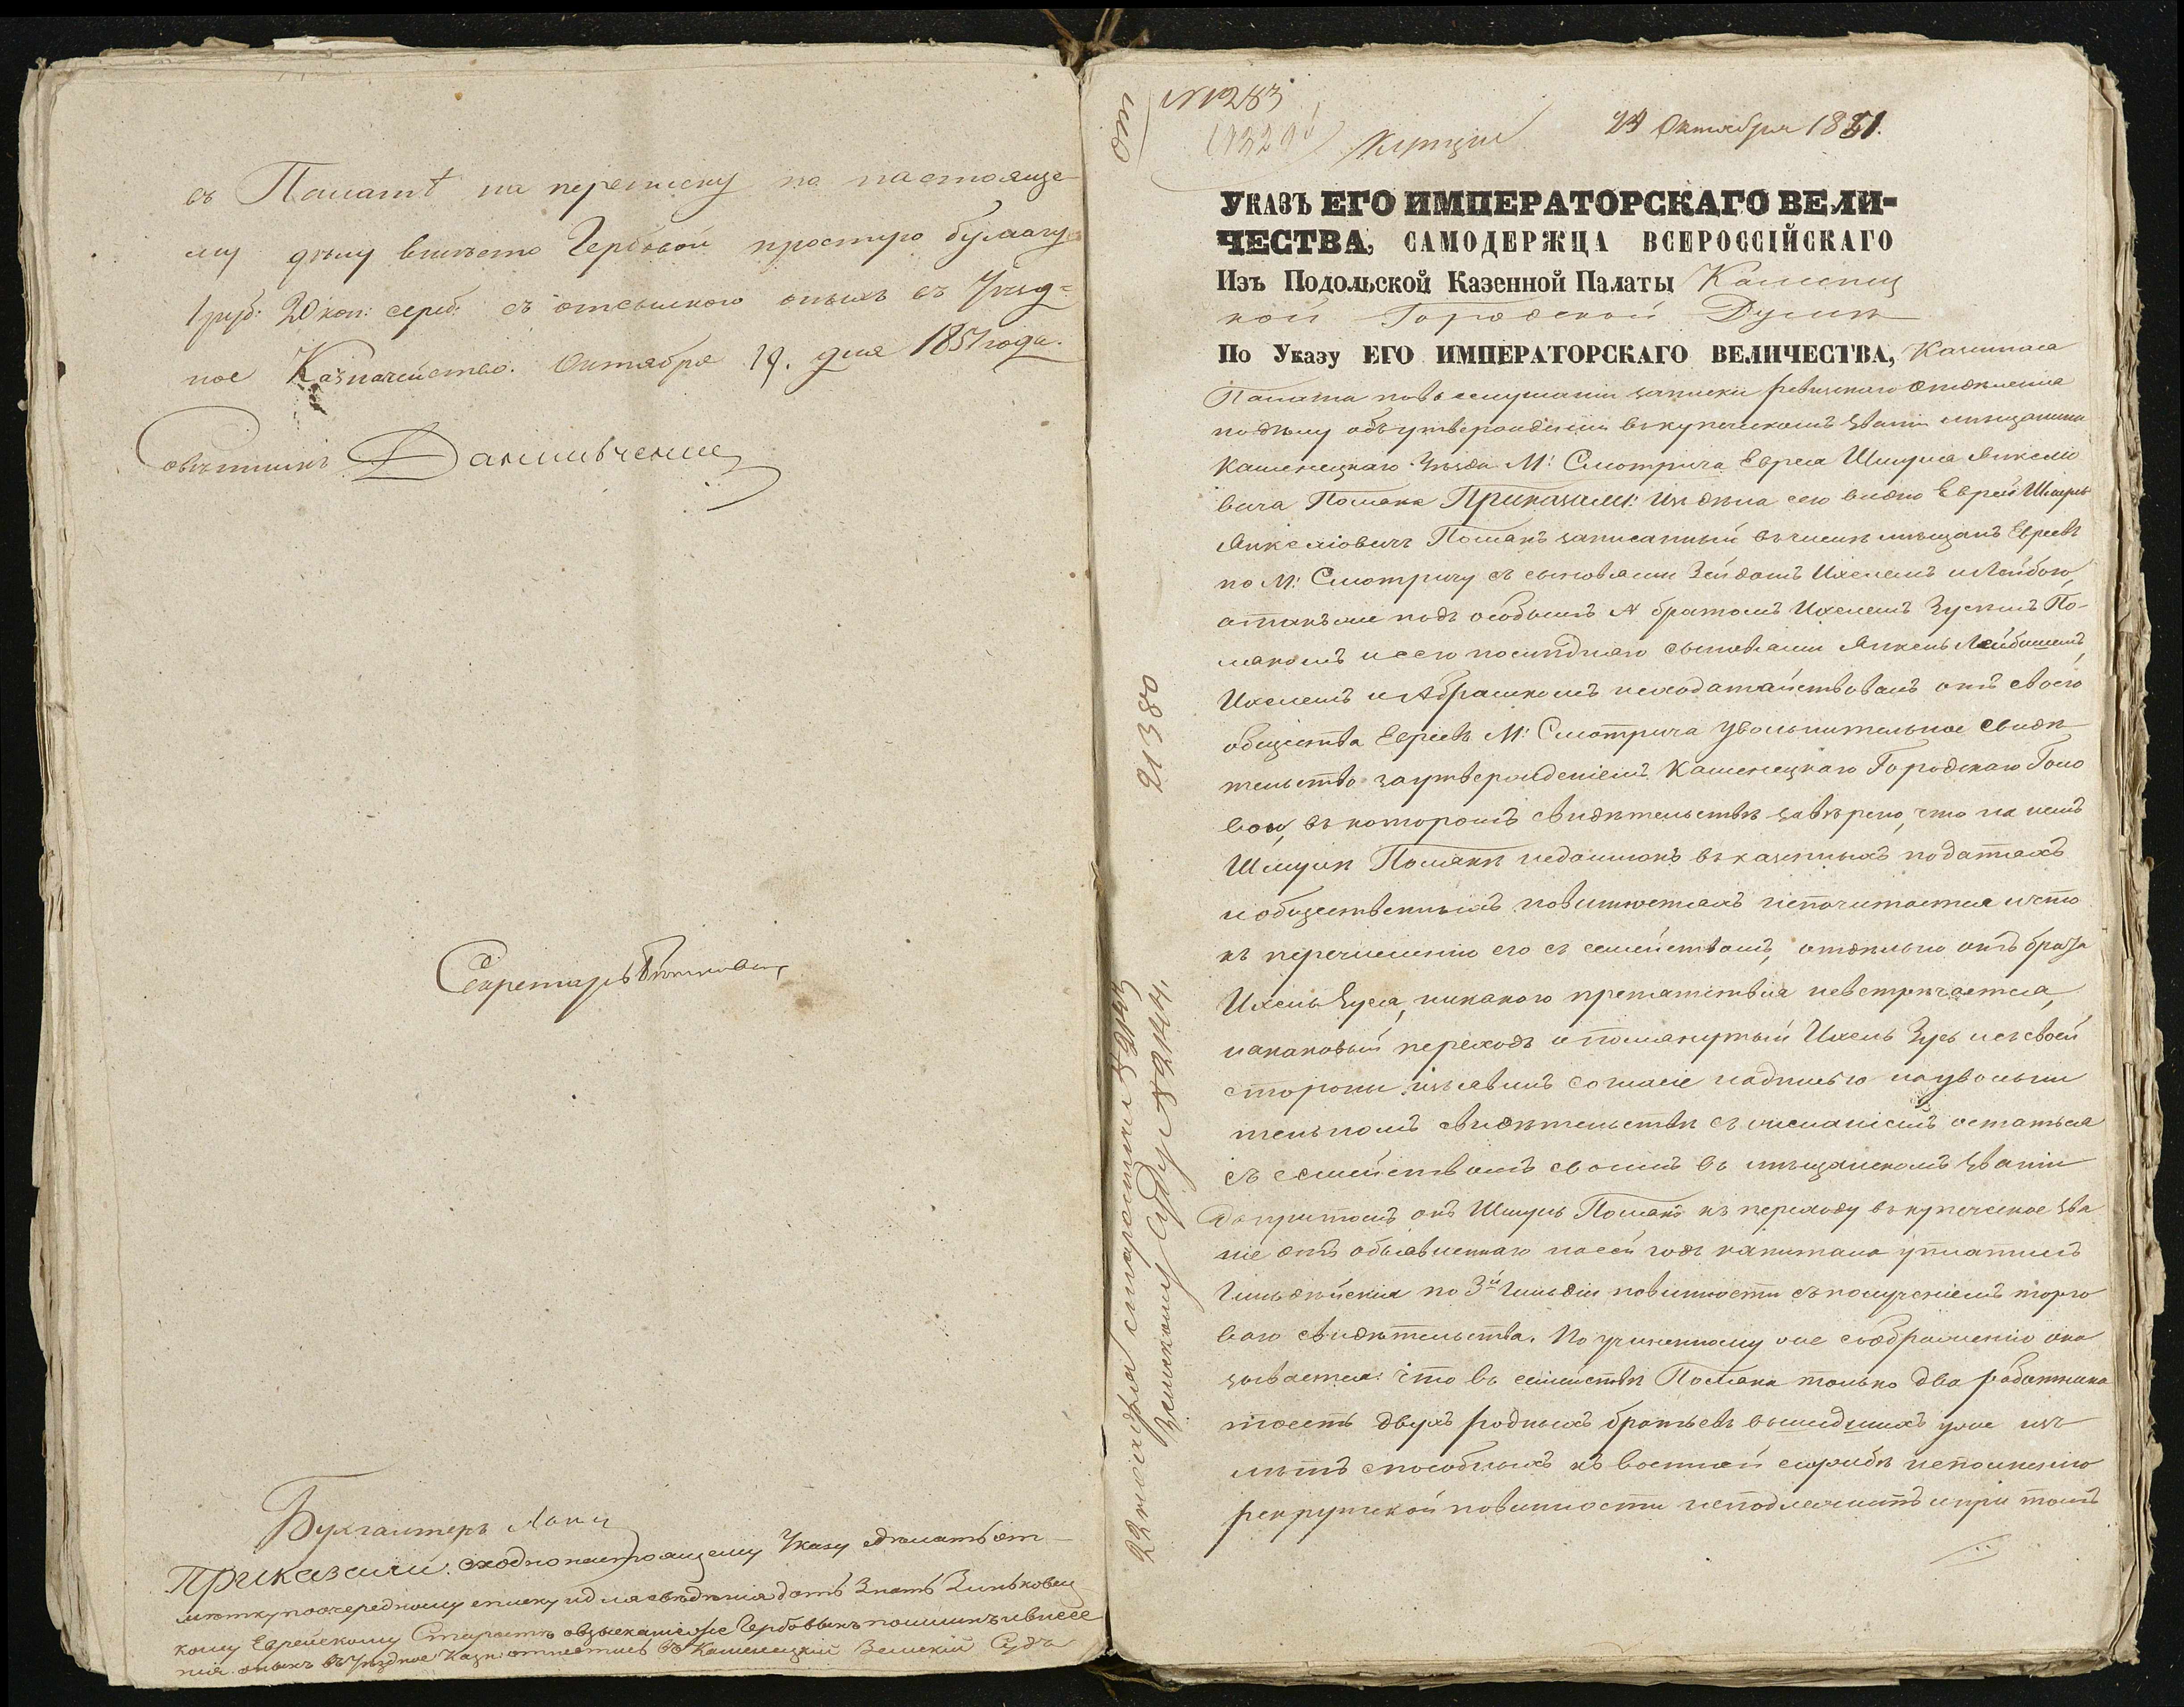 въ Палатѣ на переписку по настояще-
му дѣлу вмѣсто Гербовой простую бумагу
1 руб: 20 коп: сереб: съ отсылкою оныхъ въ Уѣзд=
ное Казначейство. Октября 19. дня 1851 года.
Совѣтникъ Данильченко
Секретарь
Бухгалтеръ
Приказали: сходно настоящему Указу сдѣлать от-
мѣтку по очередному списку и для свѣдѣнія дать знать Зиньковец-
кому Еврейскому Старостѣ, о взысканіи же Гербовыхъ пошлинъ и внесе
нія оныхъ въ Уѣздное Казн: отнестись въ Каменецкій Земскій Судъ
От
№ 1283
Купцы
24 Октября 1851.
УКАЗЪ ЕГО ИМПЕРАТОРСКАГО ВЕЛИ-
ЧЕСТВА, САМОДЕРЖЦА ВСЕРОССІЙСКАГО
Изъ Подольской Казенной Палаты Каменец
кой Городской Думѣ
По Указу ЕГО ИМПЕРАТОРСКАГО ВЕЛИЧЕСТВА, Казенная
Палата по выслушаніи записки ревизскаго отдѣленія
по дѣлу объ утвержденіи въ купеческомъ званіи мѣщанина
Каменецкаго Уѣзда М: Смотрича Еврея Шмуля Янкелю
вича Поляка Приказали: Изъ дѣла сего видно Еврей Шмуль
Янкеліовичъ Полякъ записанный въ числѣ мѣщанъ Евреевъ
по М: Смотричу съ сыновьями Зейдамъ Ихелемъ и Лейбою,
а также подъ особымъ № братомъ Ихелемъ Зусемъ По-
лякомъ и сего послѣдняго сыновьями Янкель Лейбишемъ,
Ихелемъ и Абрамкомъ исходатайствовалъ отъ своего
общества Евреевъ М: Смотрича увольнительное свидѣ
тельство за утвержденіемъ Каменецкаго Городскаго Голо
вы, въ которомъ свидѣтельствѣ завѣрено, что на немъ
Шмулѣ Полякѣ недоимокъ въ казенныхъ податяхъ
и общественныхъ повинностяхъ не почитается и что
къ перечисленію его съ семействомъ, отдѣльно отъ брата
Ихель Зуся, никакого препятствія не встрѣчается,
на каковый переходъ и помянутый Ихель Зусь и съ своей
стороны изъявилъ согласіе надписью на увольни
тельномъ свидѣтельствѣ съ желаніемъ остаться
съ семействомъ своимъ въ мѣщанскомъ званіи
да при томъ онъ Шмуль Полякъ къ переходу въ купеческое зва
ніе отъ объявленнаго на сей годъ капитала уплатилъ
Гильдейскія по 3й Гильдіи повинности съ полученіемъ торго
ваго свидѣтельства. По учиненному же соображенію ока
зывается: что въ семействѣ Поляка только два работника
то есть двухъ родныхъ братьевъ вышедшихъ уже изъ
лѣтъ способныхъ къ военной службѣ исполненію
рекрутской повинности не подлежитъ и при томъ
21380
22 ноября старостѣ № 2143
Земскому Суду № 2144.